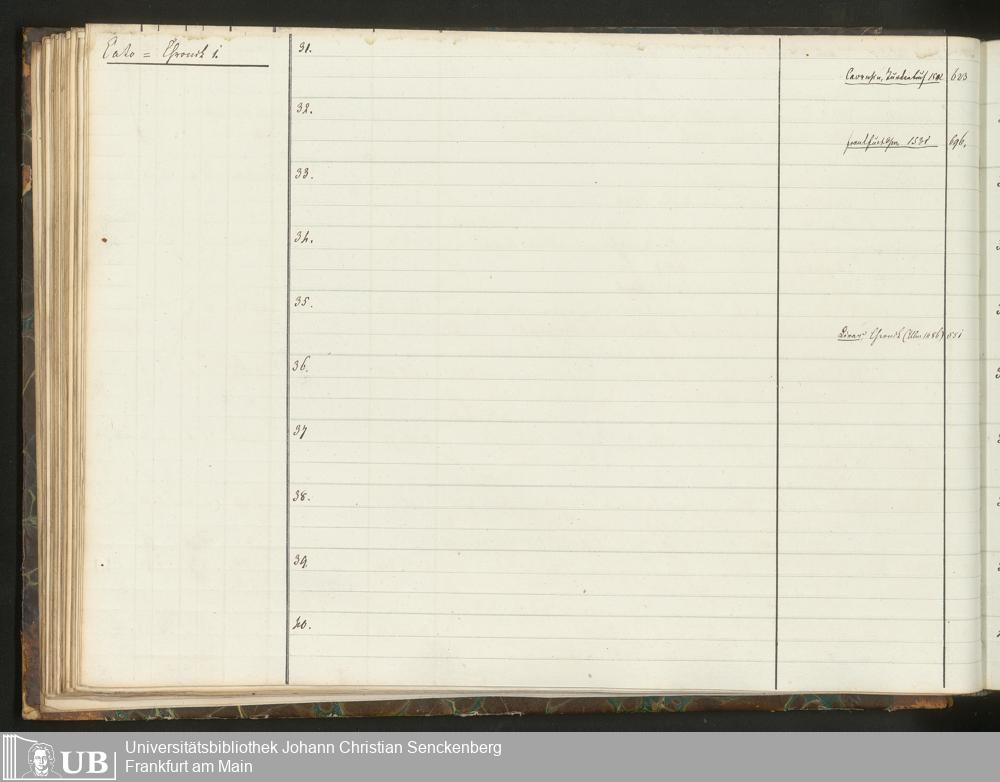 Cato = Chronik i.
31.
1502 623
32.
Frankfurt a/m 1531 696.
33.
34.
35.
Chronik (Ulm 1486) 551
36.
37
38.
39.
40.
UB
Universitätsbibliothek Johann Christian Senckenberg
Frankfurt am Main